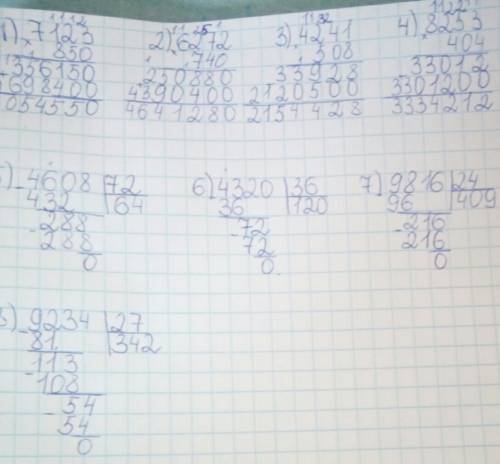 1) 7123 2) 6272 3) 4241 4) 8253
850 740 508 404
356150 250880 33928 33012
698400 4390400 2120500 3301200
6054550 4641280 2154428 3334212
5) 4608 72 6) 4320 36 7) 9816 24
432 64 36 120 96 409
288 72 216
288 72 216
0 0 0
8) 9234 27
81 342
113
108
54
54
0